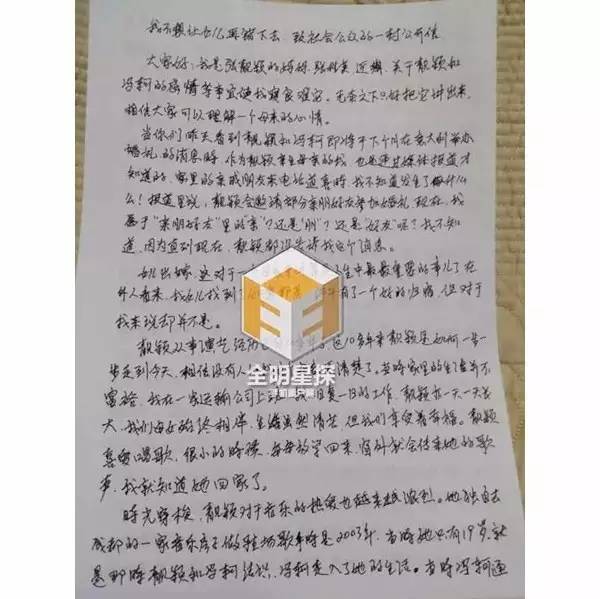 我不想让女儿再错下去 致社会公众的一封公开信
大家好：我是张靓颖的妈妈，张桂英 近期，关于靓颖和
冯柯的婚情等事宜使我寝食难安。无奈之下只好把它讲出来，
相信大家可以理解一个母亲的心情。
当你们昨天看到靓颖和冯柯即将于下个月在意大利举办
婚礼的消息时，作为靓颖亲生母亲的我，也是通过媒体报道才
知道的，家里的亲戚朋友来电话道喜时，我不知道发生了什么
么！报道里说，靓颖会邀请部分亲朋好友参加婚礼，现在，我
属于“亲朋好友”里的“亲”？还是“朋”？还是“好友”呢？我不知
道，因为直到现在，靓颖都没告诉我这个消息。
女儿出嫁，这对于一 生中最最重要的事儿了，在
外人看来，我女儿找到了 有了一个好的归宿，但对于
我来说却并不是。
靓颖从事演艺 这10多年来靓颖是如何一步一
步走到今天，相信没有人 清楚了。其时家里的生活并不
富裕，我在一家运输公司上班，我日复一日的工作，靓颖亦一天一天长
大，我们母女俩终相伴，生活虽然清苦，但我们享受着幸福。靓颖
喜爱唱歌，很小的时候，每每放学回来，窗外就会传来她的歌
声，我就知道她回家了。
时光穿梭，靓颖对于音乐的热爱也越来越浓烈。她独自去
成都的一家音乐房子做驻场歌手时是2003年，当时她只有19岁，就
是那时靓颖和冯柯结识，冯柯走入了她的生活。当时冯柯通
全明星探